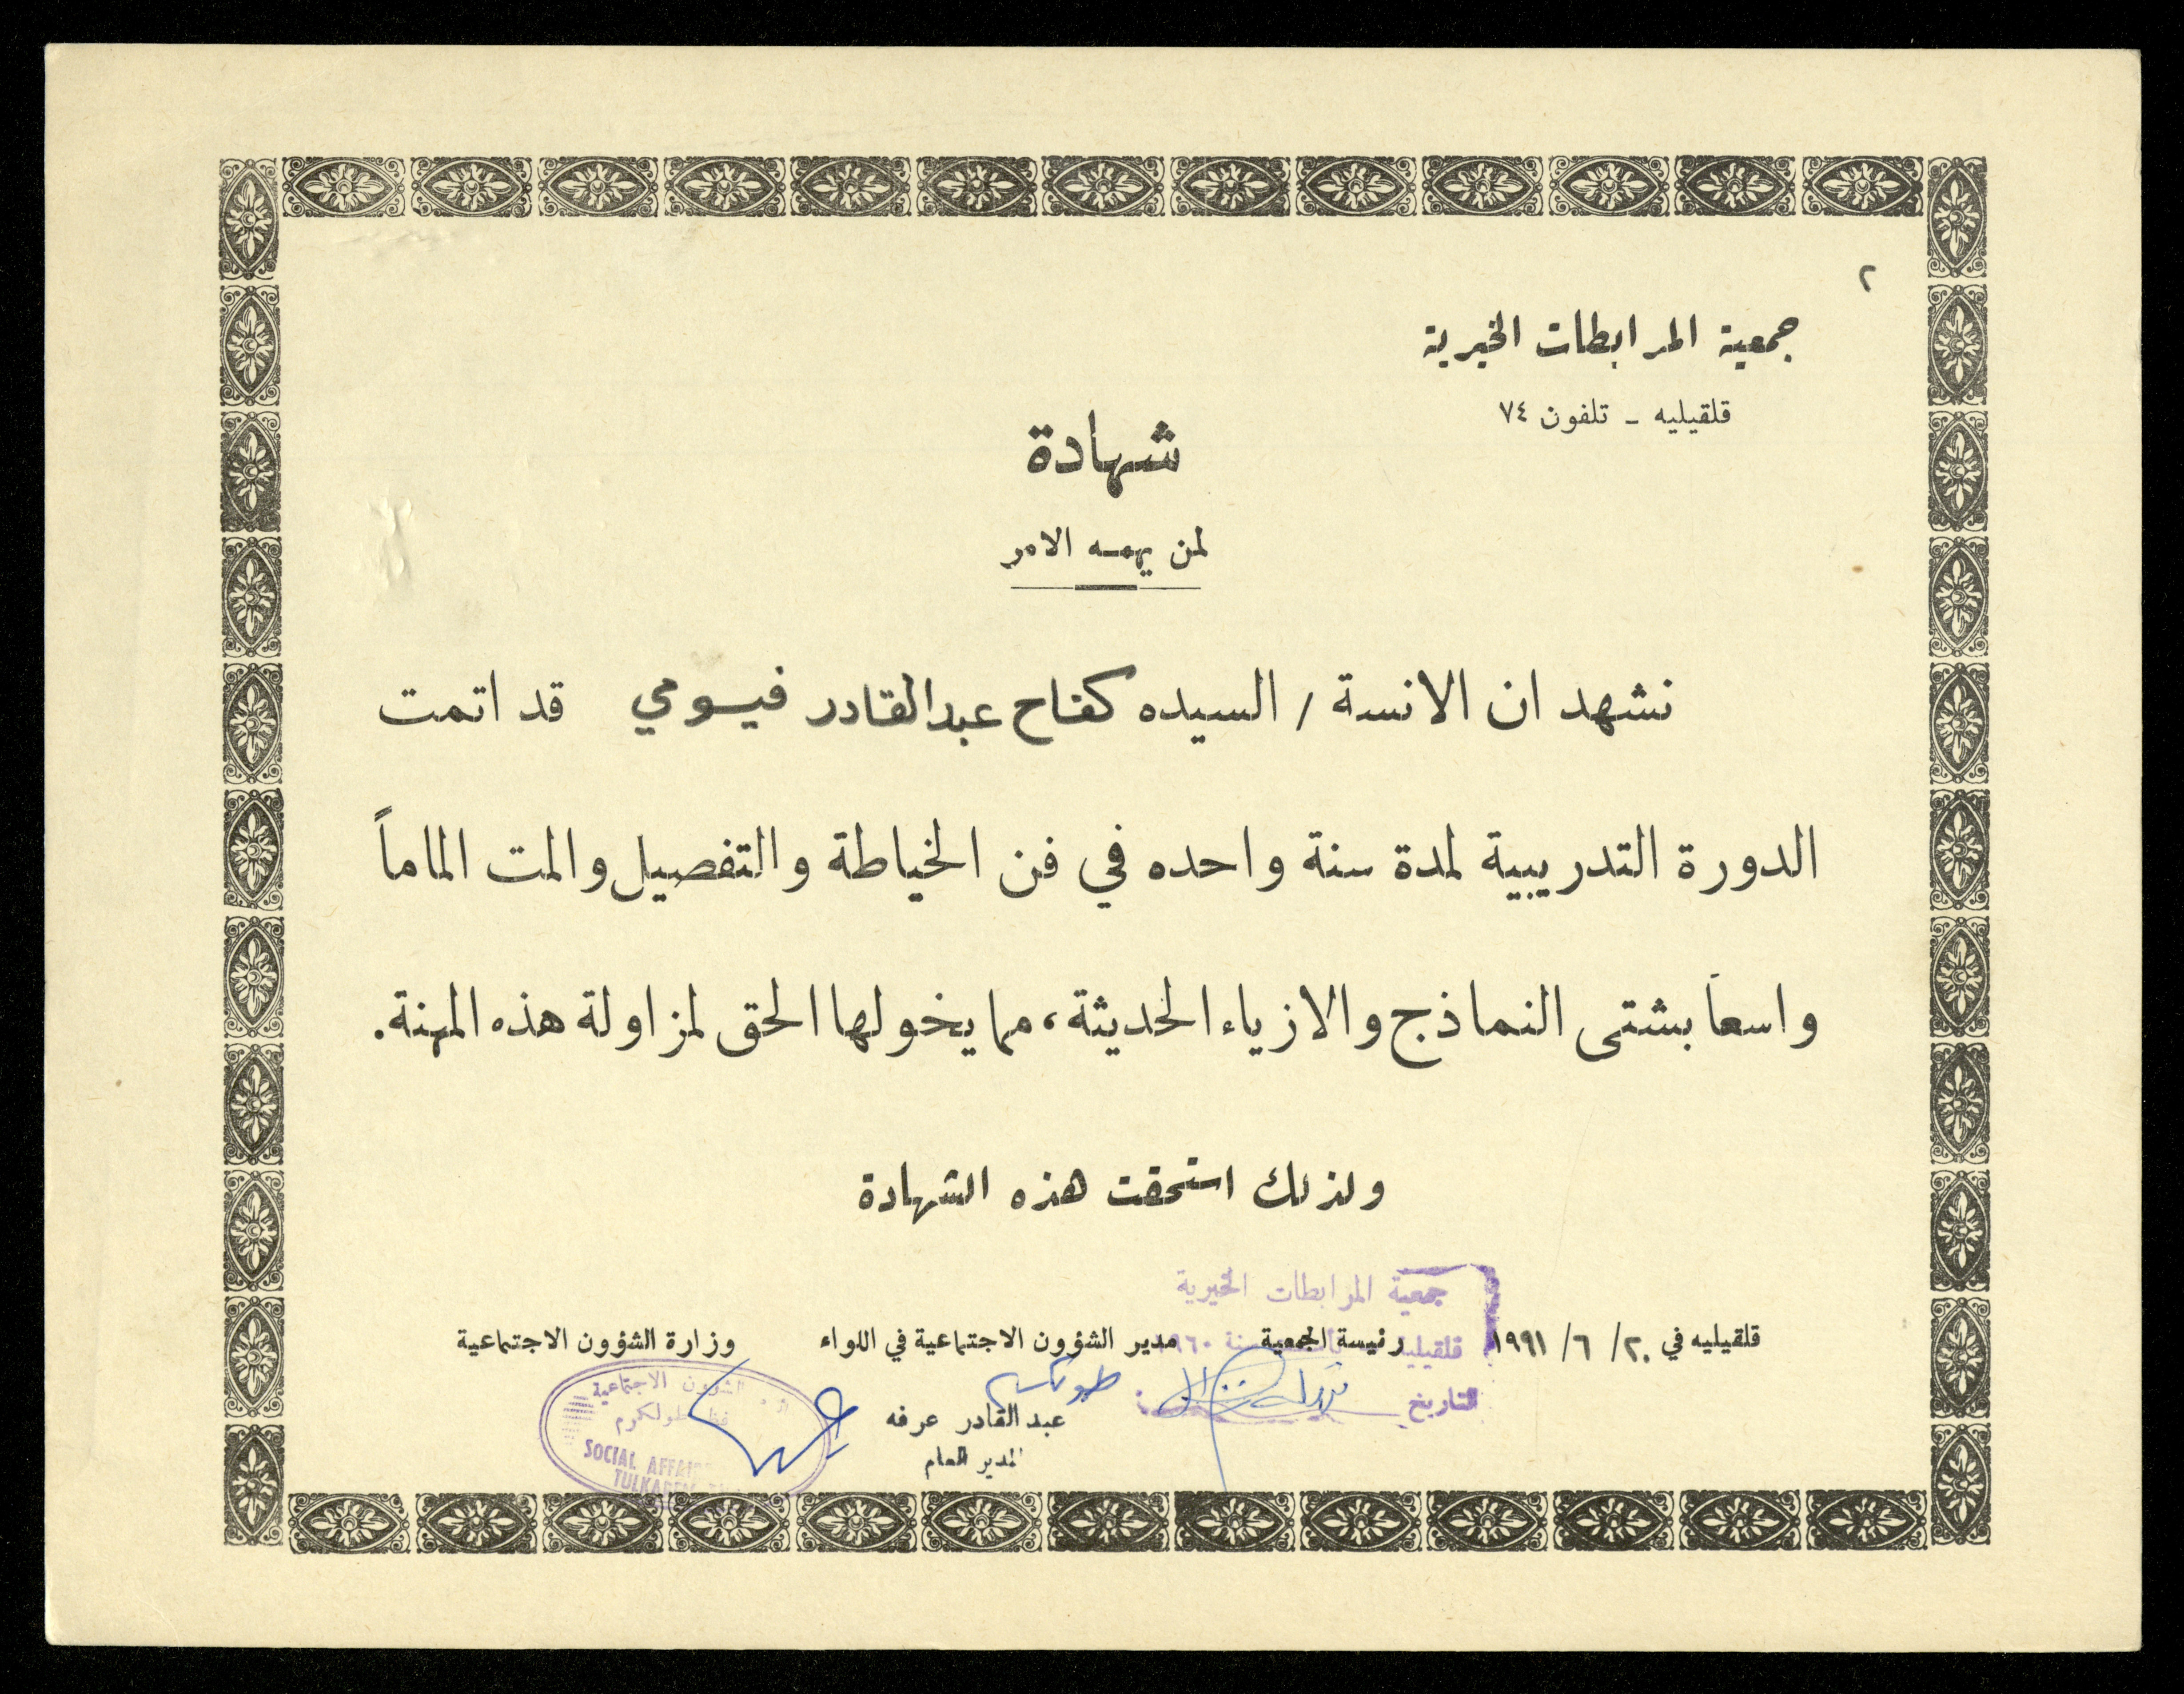 ٢
جمعية المرابطات الخيرية
قلقيليه - تلفون ٧٤
شهادة
لمن يهمه الامر
نشهد ان الانسة / السيده كفاح عبدالقادر فيومي قد اتمت
الدورة التدريبية لمدة سنة واحده في فن الخياطة والتفصيل والمت الماماً
واسعاً بشتى النماذج والازياء الحديثة، مما يخولها الحق لمزاولة هذه المهنة.
ولذلك استحقت هذه الشهادة
جمعية المرابطات الخيرية
قلقيليه في ٢٠ / ٦ / ١٩٩١ رئيسة الجمعية مدير الشؤون الاجتماعية في اللواء وزارة الشؤون الاجتماعية
قلقيلية سنة ١٩٦٠
التاريخ
عبد القادر عرفه
المدير العام
الشؤون الاجتماعية
طولكرم
SOCIAL
TULKAREM